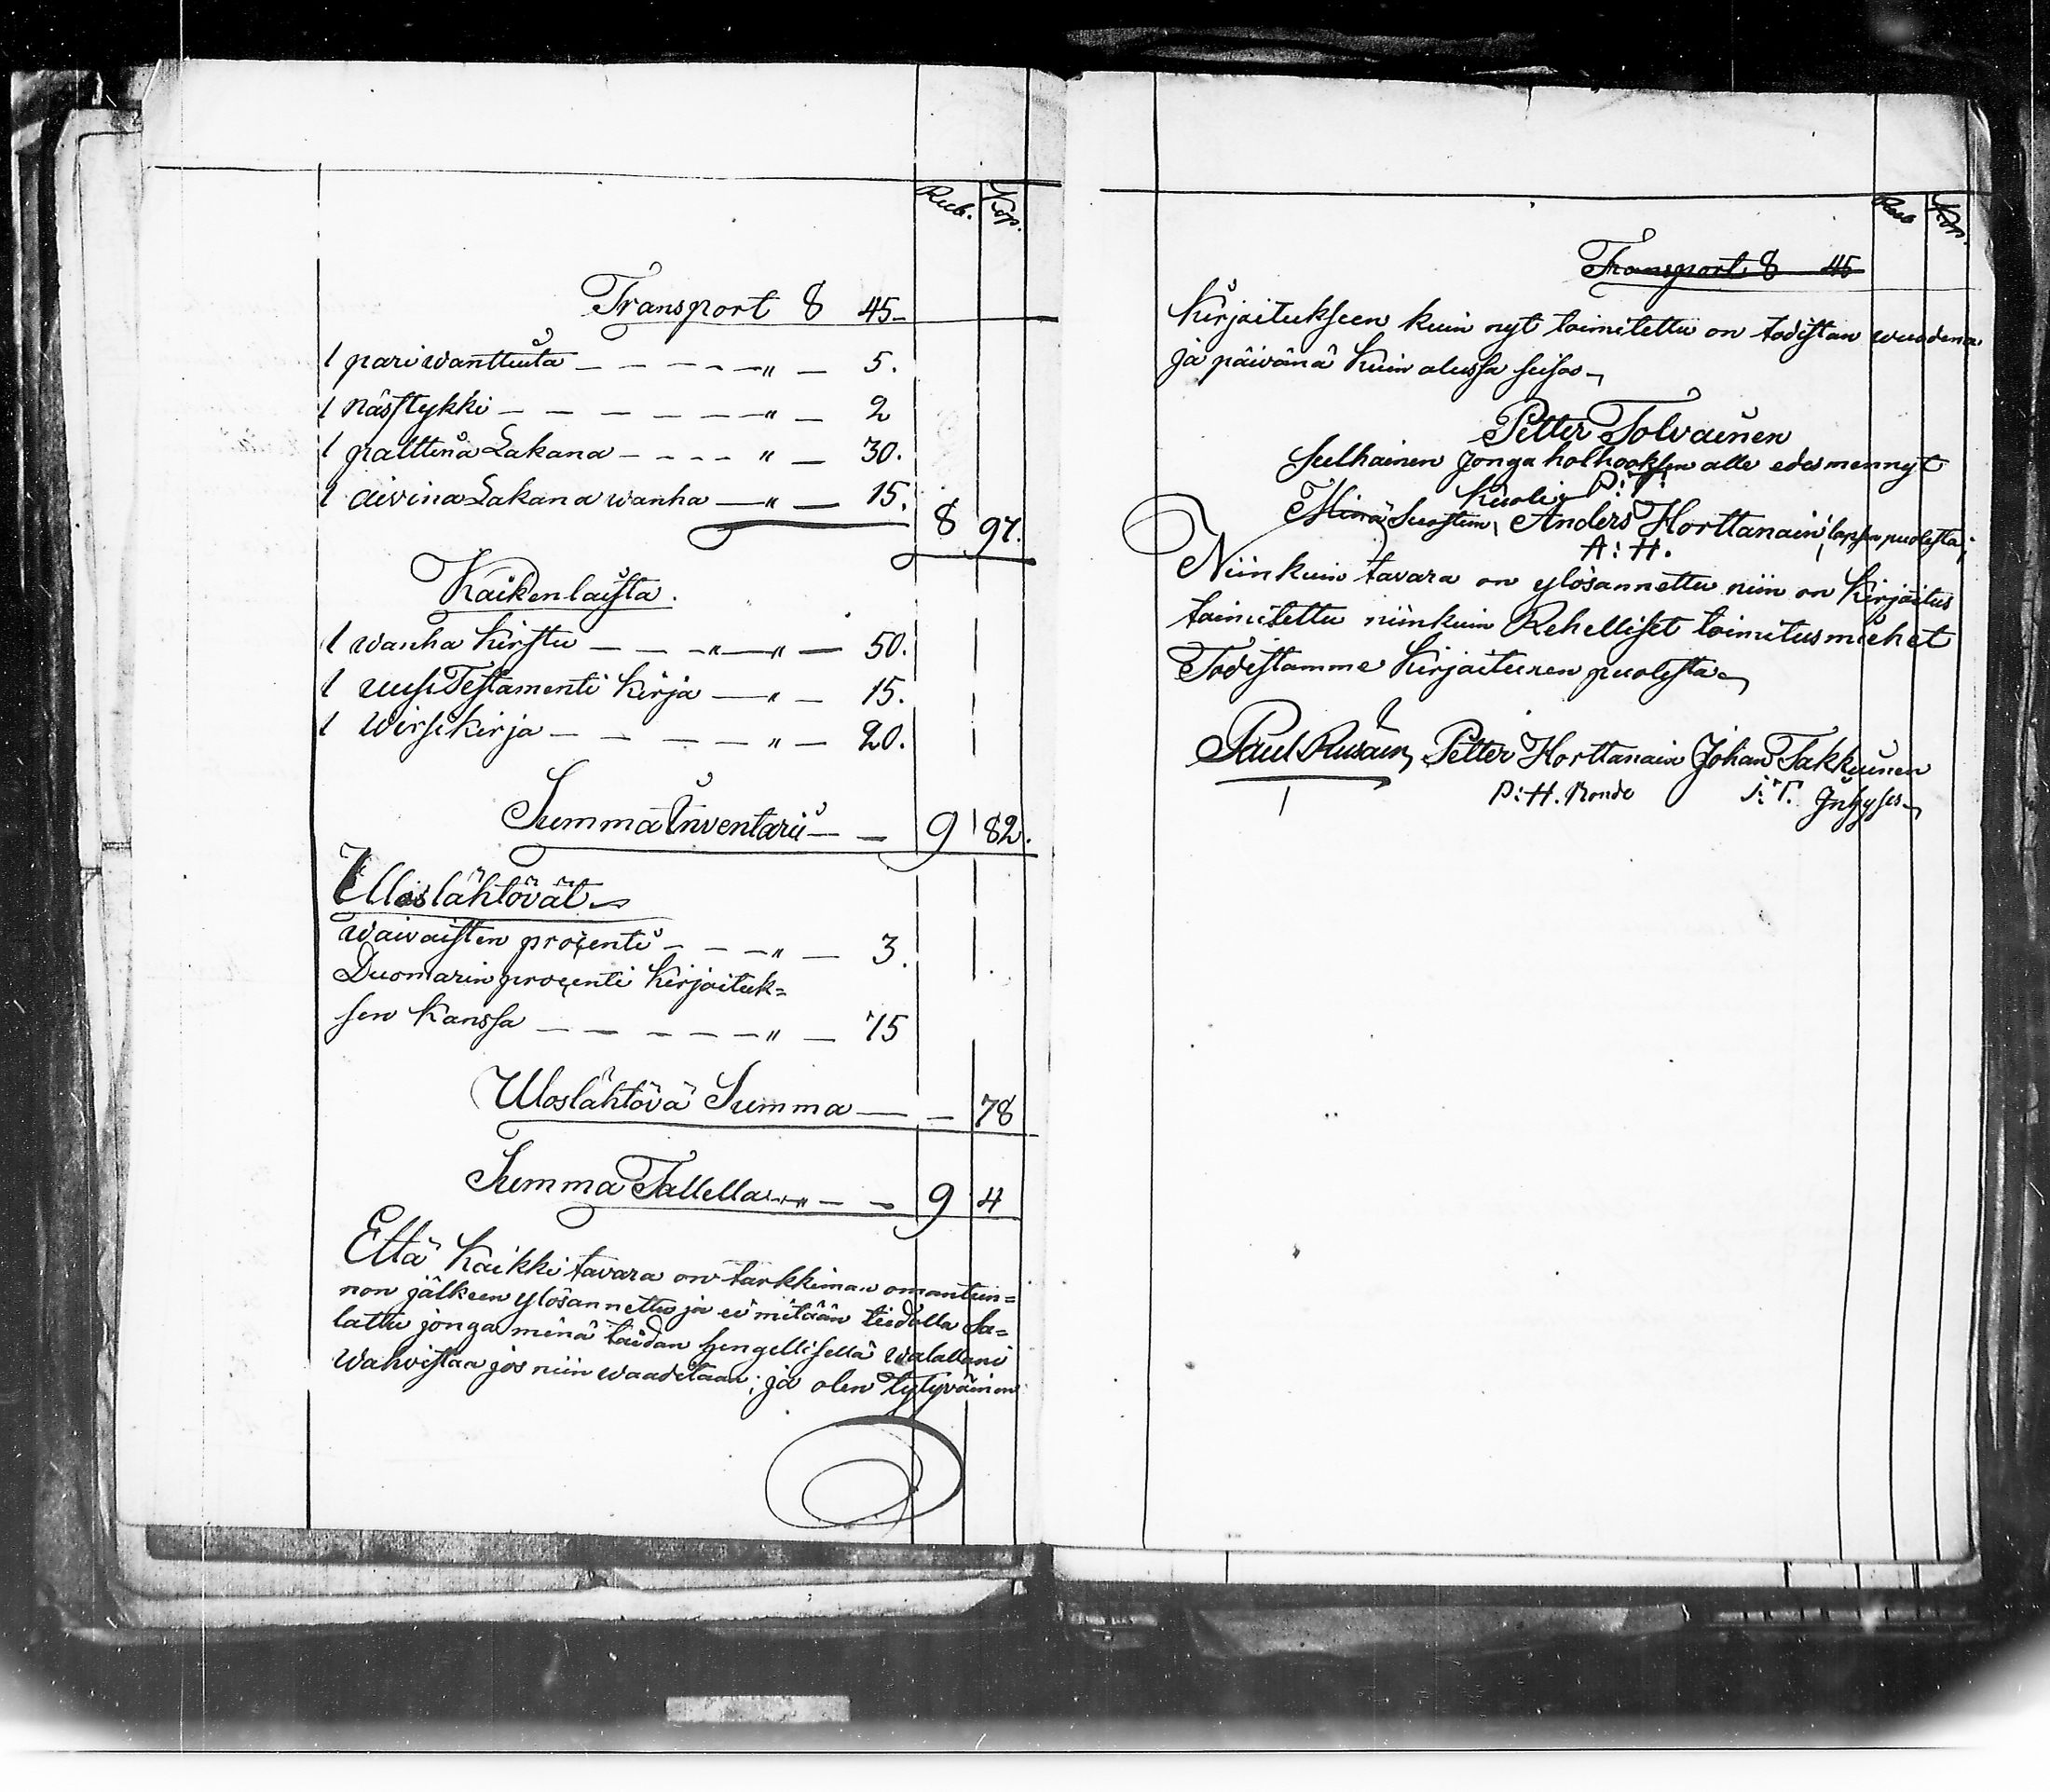 Rub. Kop.
Transport 8 45
1 pari wanttuita — — — — „ — 5.
1 Nästykki — — — — — „ — 2
1 palttina Lakana — — — — „ — 30.
1 aivina Lakana wanha — „ — 15. 8 97.
Kaikenlaista.
1 wanha kirstu — — „ — „ — 50.
1 uusi Testamenti kirja — „ — 15.
1 Wirsikirja — — — — „ — 20.
Summa Inventarii — — 9 82.
Uloslähtövät
waivaisten procenti — — — „ — 3.
Duomarin procenti kirjoituk=
sen kanssa — — — — — „ — 75
Uloslähtövä Summa — — 78
Summa Tallella — „ — — 9 4
Että kaikki tavara on tarkkiman omantun=
non jälkeen ylösannettu ja ei mitään tiedolla sa=
lattu jonga minä taidan hengellisellä walallani
Wahvistaa jos niin waaditaan; ja olen tytyväinen
Rub Kop.
Transport 8 45
kirjoitukseen kuin nyt toimitettu on todistan wuodena
ja päivänä kuin alussa seisoo
Petter Tolvainen
jonga holhouksen alle edesmennyt
kuoli P: T:
Minä Anders Horttanain lapsen puolesta;
A: H.
Niinkuin tavara on ylösannettu niin on kirjoitus
toimitettu niinkuin Rehelliset toimitusmiehet
Todistamme kirjoituxen puolesta
Paul Rusain, Petter Horttanain Johan Takkuinen
P: H. J: T.